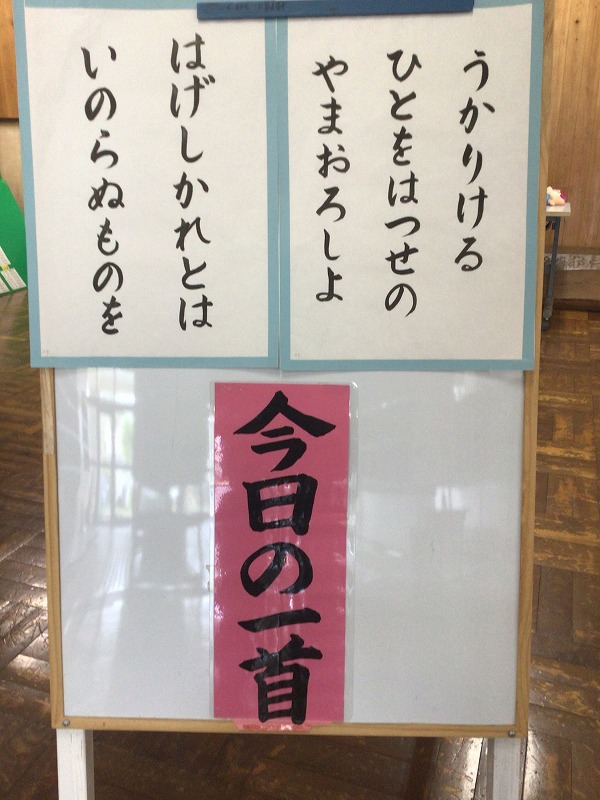 うかりける
ひとをはつせの
やまおろしよ
はげしかれとは
いのらぬものを
今日の一首